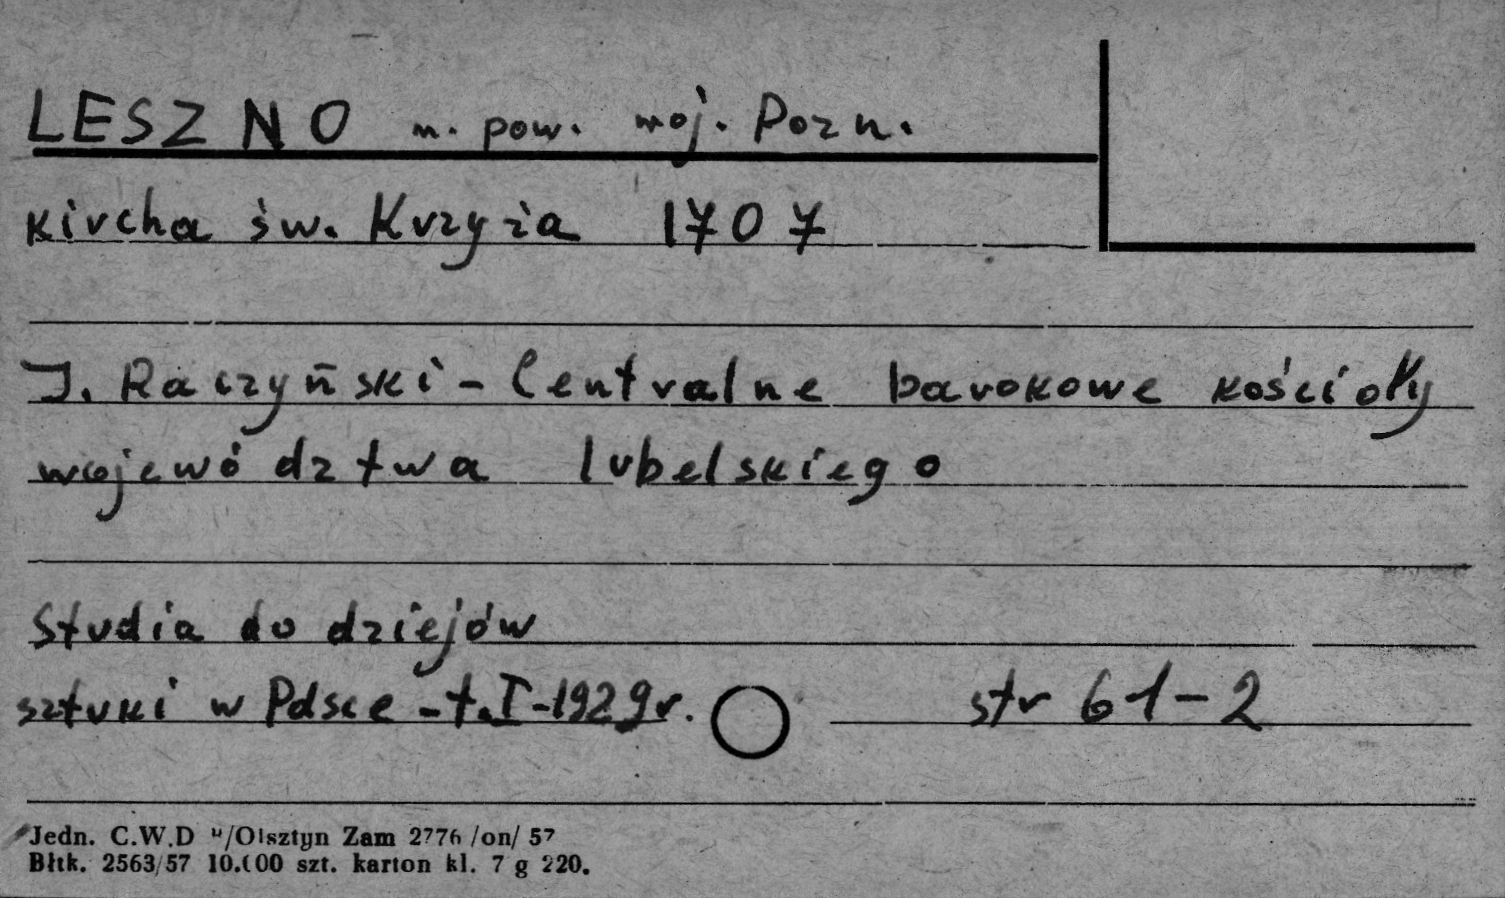 LESZNO m. pow. woj. Pozn.
kircha św. Krzyża 1707
J. Raczyński - Centralne barokowe kościoły
województwa lubelskiego
Studia do dziejów
sztuki w Polsce - t. I - 1929 r. str 61-2
Jedn. C.W.D /Olsztyn Zam 2776 /on/ 57
Błtk. 2563/57 10.000 szt. karton kl. 7 g 220.